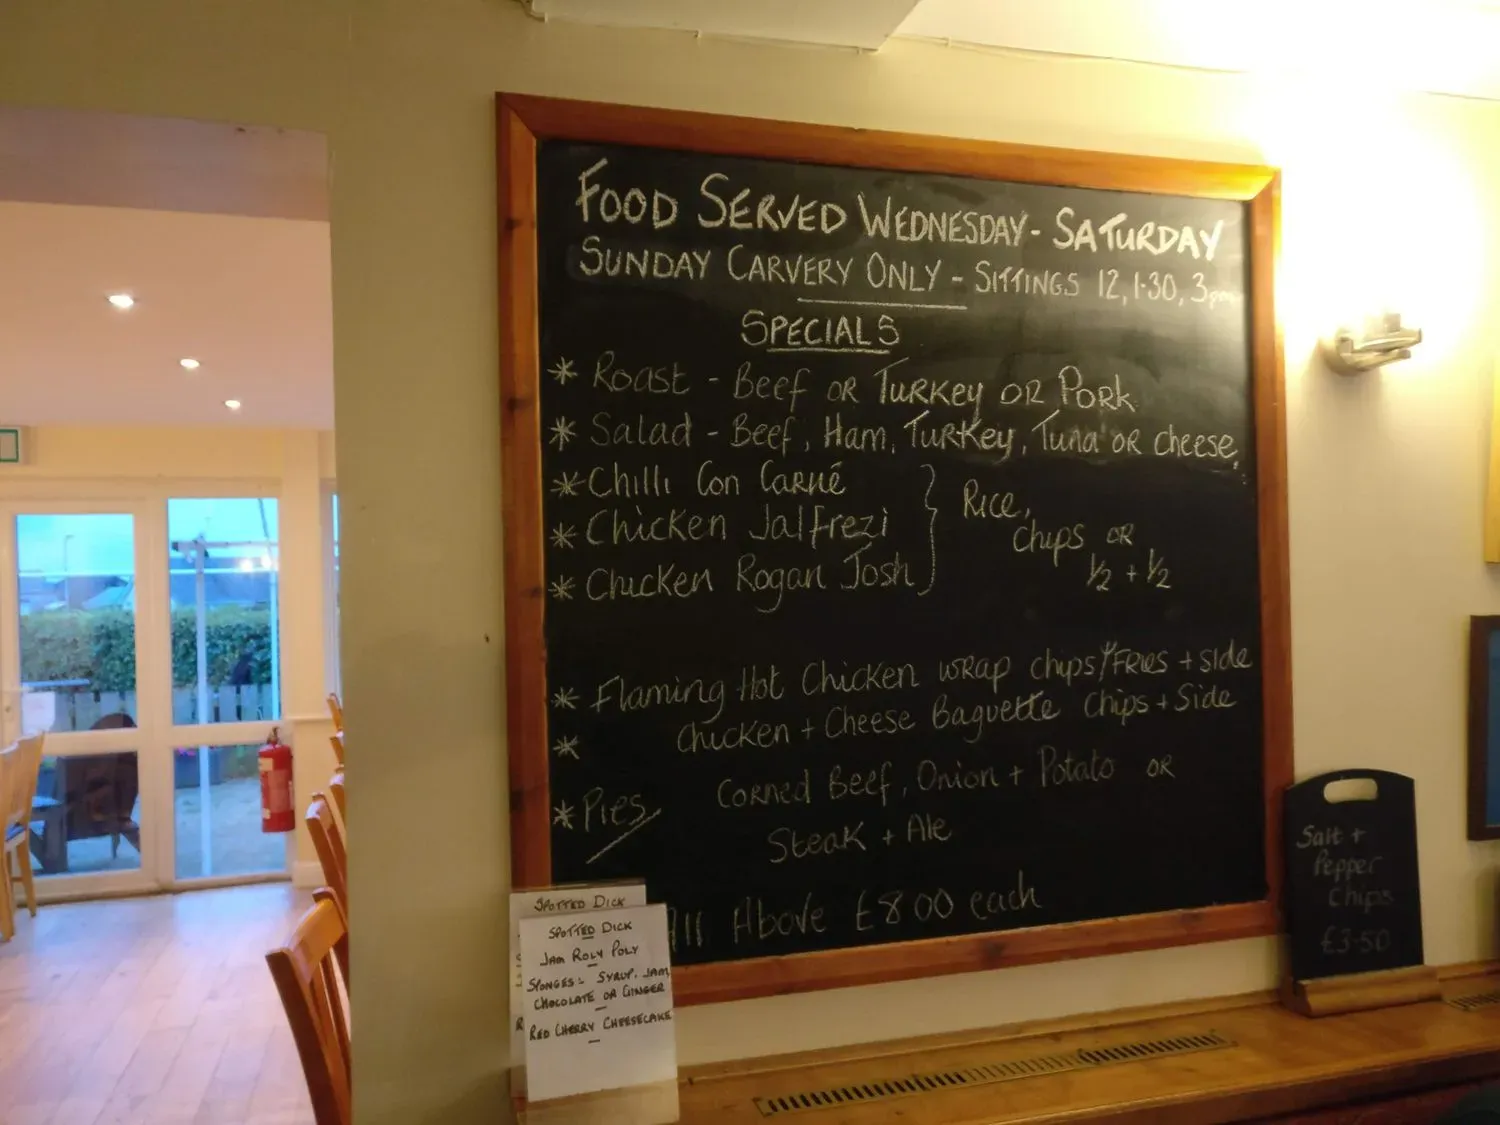 FOOD SERVED WEDNESDAY - SATURDAY
SUNDAY CARVERY ONLY - SITTINGS 12, 1·30, 3pm
SPECIALS
* ROAST - Beef OR TURKEY OR PORK
* Salad - Beef, Ham, TURKEY, Tuna OR cheese.
* Chilli Con Carné
* Chicken Jalfrezi
* Chicken Rogan Josh
Rice,
Chips OR
1/2 + 1/2
* Flaming Hot Chicken WRAP chips/FRIES + side
* Chicken + Cheese Baguette Chips + Side
* Pies
Corned Beef, Onion + Potato OR
Steak + Ale
All Above £8 00 each
SPOTTED DICK
SPOTTED DICK
JAM ROLY POLY
SPONGES: SYRUP, JAM,
CHOCOLATE OR GINGER
RED CHERRY CHEESECAKE
Salt +
Pepper
Chips
£3·50